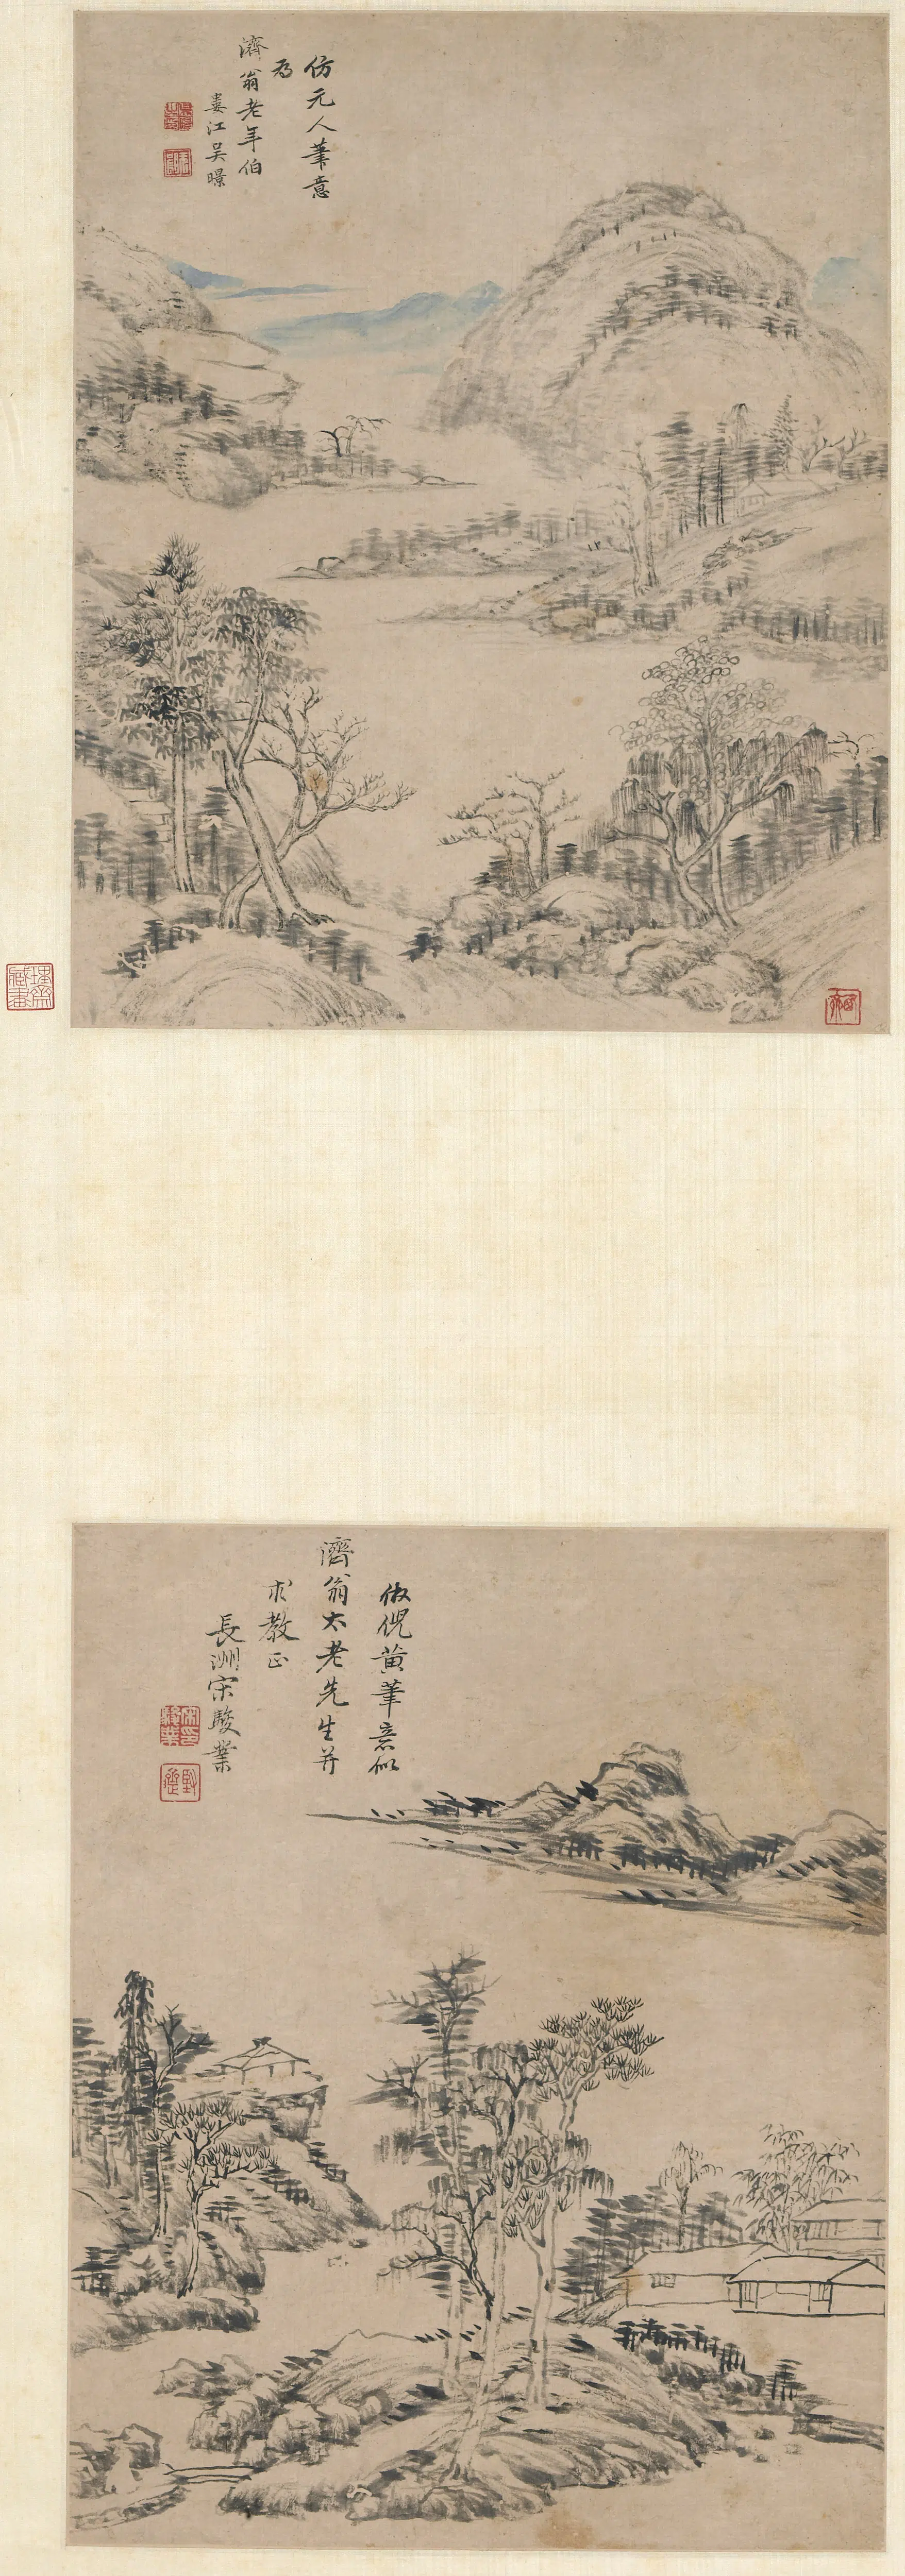 仿元人筆意
為
濟翁老年伯
婁江吴暻
倣倪黃筆意似
濟翁太老先生并
求教正
長洲宋駿業